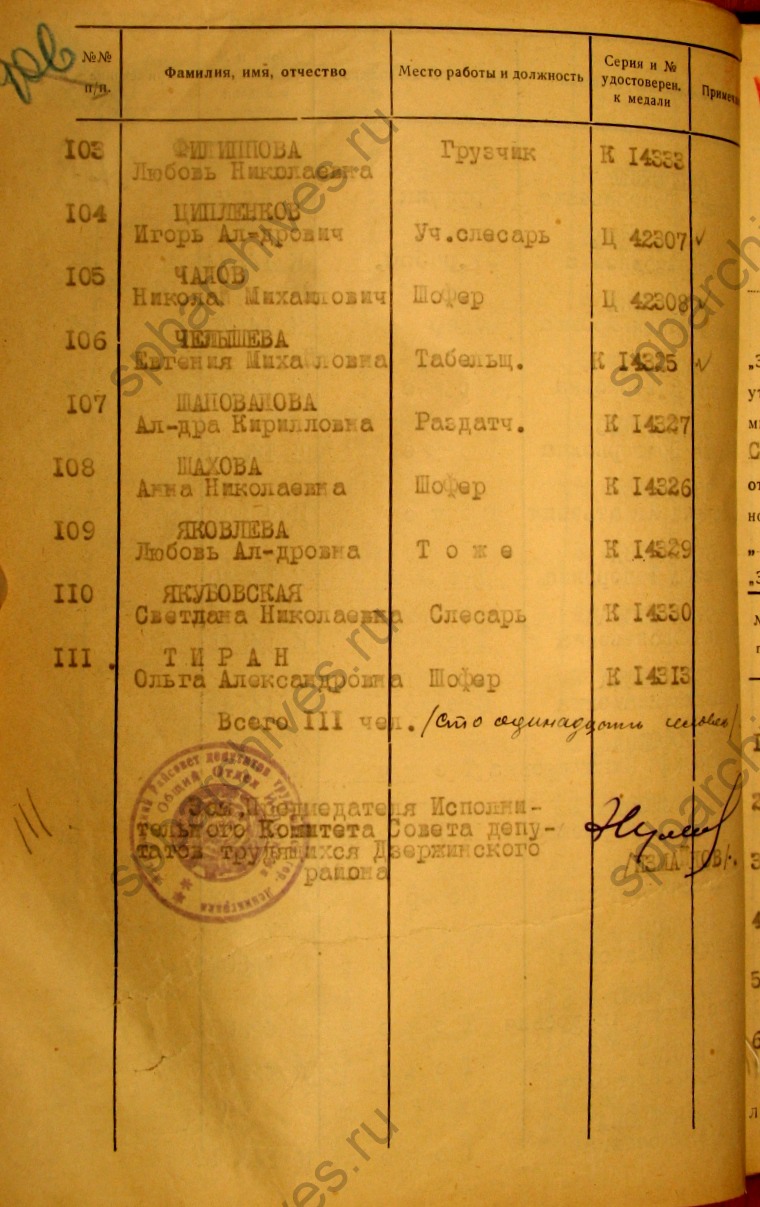 №№ п/п.
Фамилия, имя, отчество
Место работы и должность
Серия и № удостоверен. к медали
103 ФИЛИППОВА Грузчик К 14333
Любовь Николаевна
104 ЦИПЛЕНКОВ
Игорь Ал-дрович Уч.слесарь Ц 42307 ✓
105 ЧАЛОВ
Николай Михайлович Шофер Ц 42308 ✓
106 ЧЕЛЫШЕВА
Евгения Михайловна Табельщ. К 14325 ✓
107 ШАПОВАЛОВА
Ал-дра Кирилловна Раздатч. К 14327
108 ШАХОВА
Анна Николаевна Шофер К 14326
109 ЯКОВЛЕВА
Любовь Ал-дровна Т о ж е К 14329
110 ЯКУБОВСКАЯ
Светлана Николаевна Слесарь К 14330
111. Т И Р А Н
Ольга Александровна Шофер К 14313
Всего 111 чел. /сто одинадцать человек/
Зам.Председателя Исполни-
тельного Комитета Совета депу-
татов трудящихся Дзержинского
района
Общий Отдел
spbarchives.ru